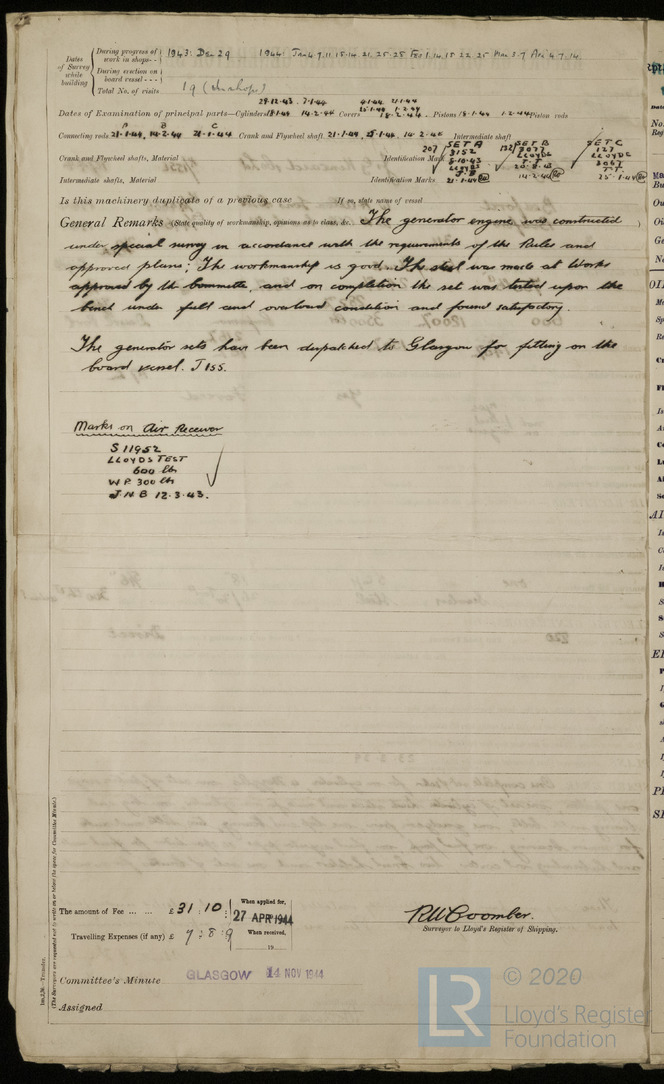 Dates of Survey while building
During progress of work in shops - - 1943: Dec 29 1944: Jan 4.7.11.15.14.21.25.25 Feb 1.14.15.22.25 Mar 3.7 Apl 4.7.14.
During erection on board vessel - - -
Total No. of visits 19 (in shops)
29.12.43. 7.1.44 4.1.44 21.1.44
Dates of Examination of principal parts—Cylinders 18.1.44 14.2.44 Covers 25.1.44 1.2.44 18.2.44. Pistons 18.1.44 1.2.44 Piston rods
A B C
Connecting rods 21.1.44, 14.2.44 21.1.44 Crank and Flywheel shaft 21.1.44, 25.1.44, 14.2.44 Intermediate shaft
Crank and Flywheel shafts, Material Identification Mark
207 SET A 3152 5.10.43 LLOYDS J.B 21.1.44
132 SET B 3077 LLOYDS T.T. 20.8.43 14.2.44
SET C 127 LLOYDS 3067 T.T. 25.1.44
Intermediate shafts, Material Identification Marks
Is this machinery duplicate of a previous case If so, state name of vessel
General Remarks (State quality of workmanship, opinions as to class, &c. The generator engine was constructed
under special survey in accordance with the requirements of the Rules and
approved plans; The workmanship is good. The steel was made at Works
approved by the Committee, and on completion the set was tested upon the
bench under full and overload condition and found satisfactory.
The generator sets have been dispatched to Glasgow for fitting on the
board vessel. J 155.
Marks on Air Receiver
S 11952
LLOYDS TEST
600 lbs
W P 300 lbs
J.N.B 12.3.43.
1m,2,36.—Transfer.
(The Surveyors are requested not to write on or below the space for Committee's Minute.)
The amount of Fee ... ... £ 31 : 10 :
When applied for,
27 APR 1944
Travelling Expenses (if any) £ 7 : 8 : 9
When received,
19
R.W. Coomber.
Surveyor to Lloyd's Register of Shipping.
Committee's Minute GLASGOW 14 NOV 1944
Assigned
LR
© 2020
Lloyd's Register
Foundation